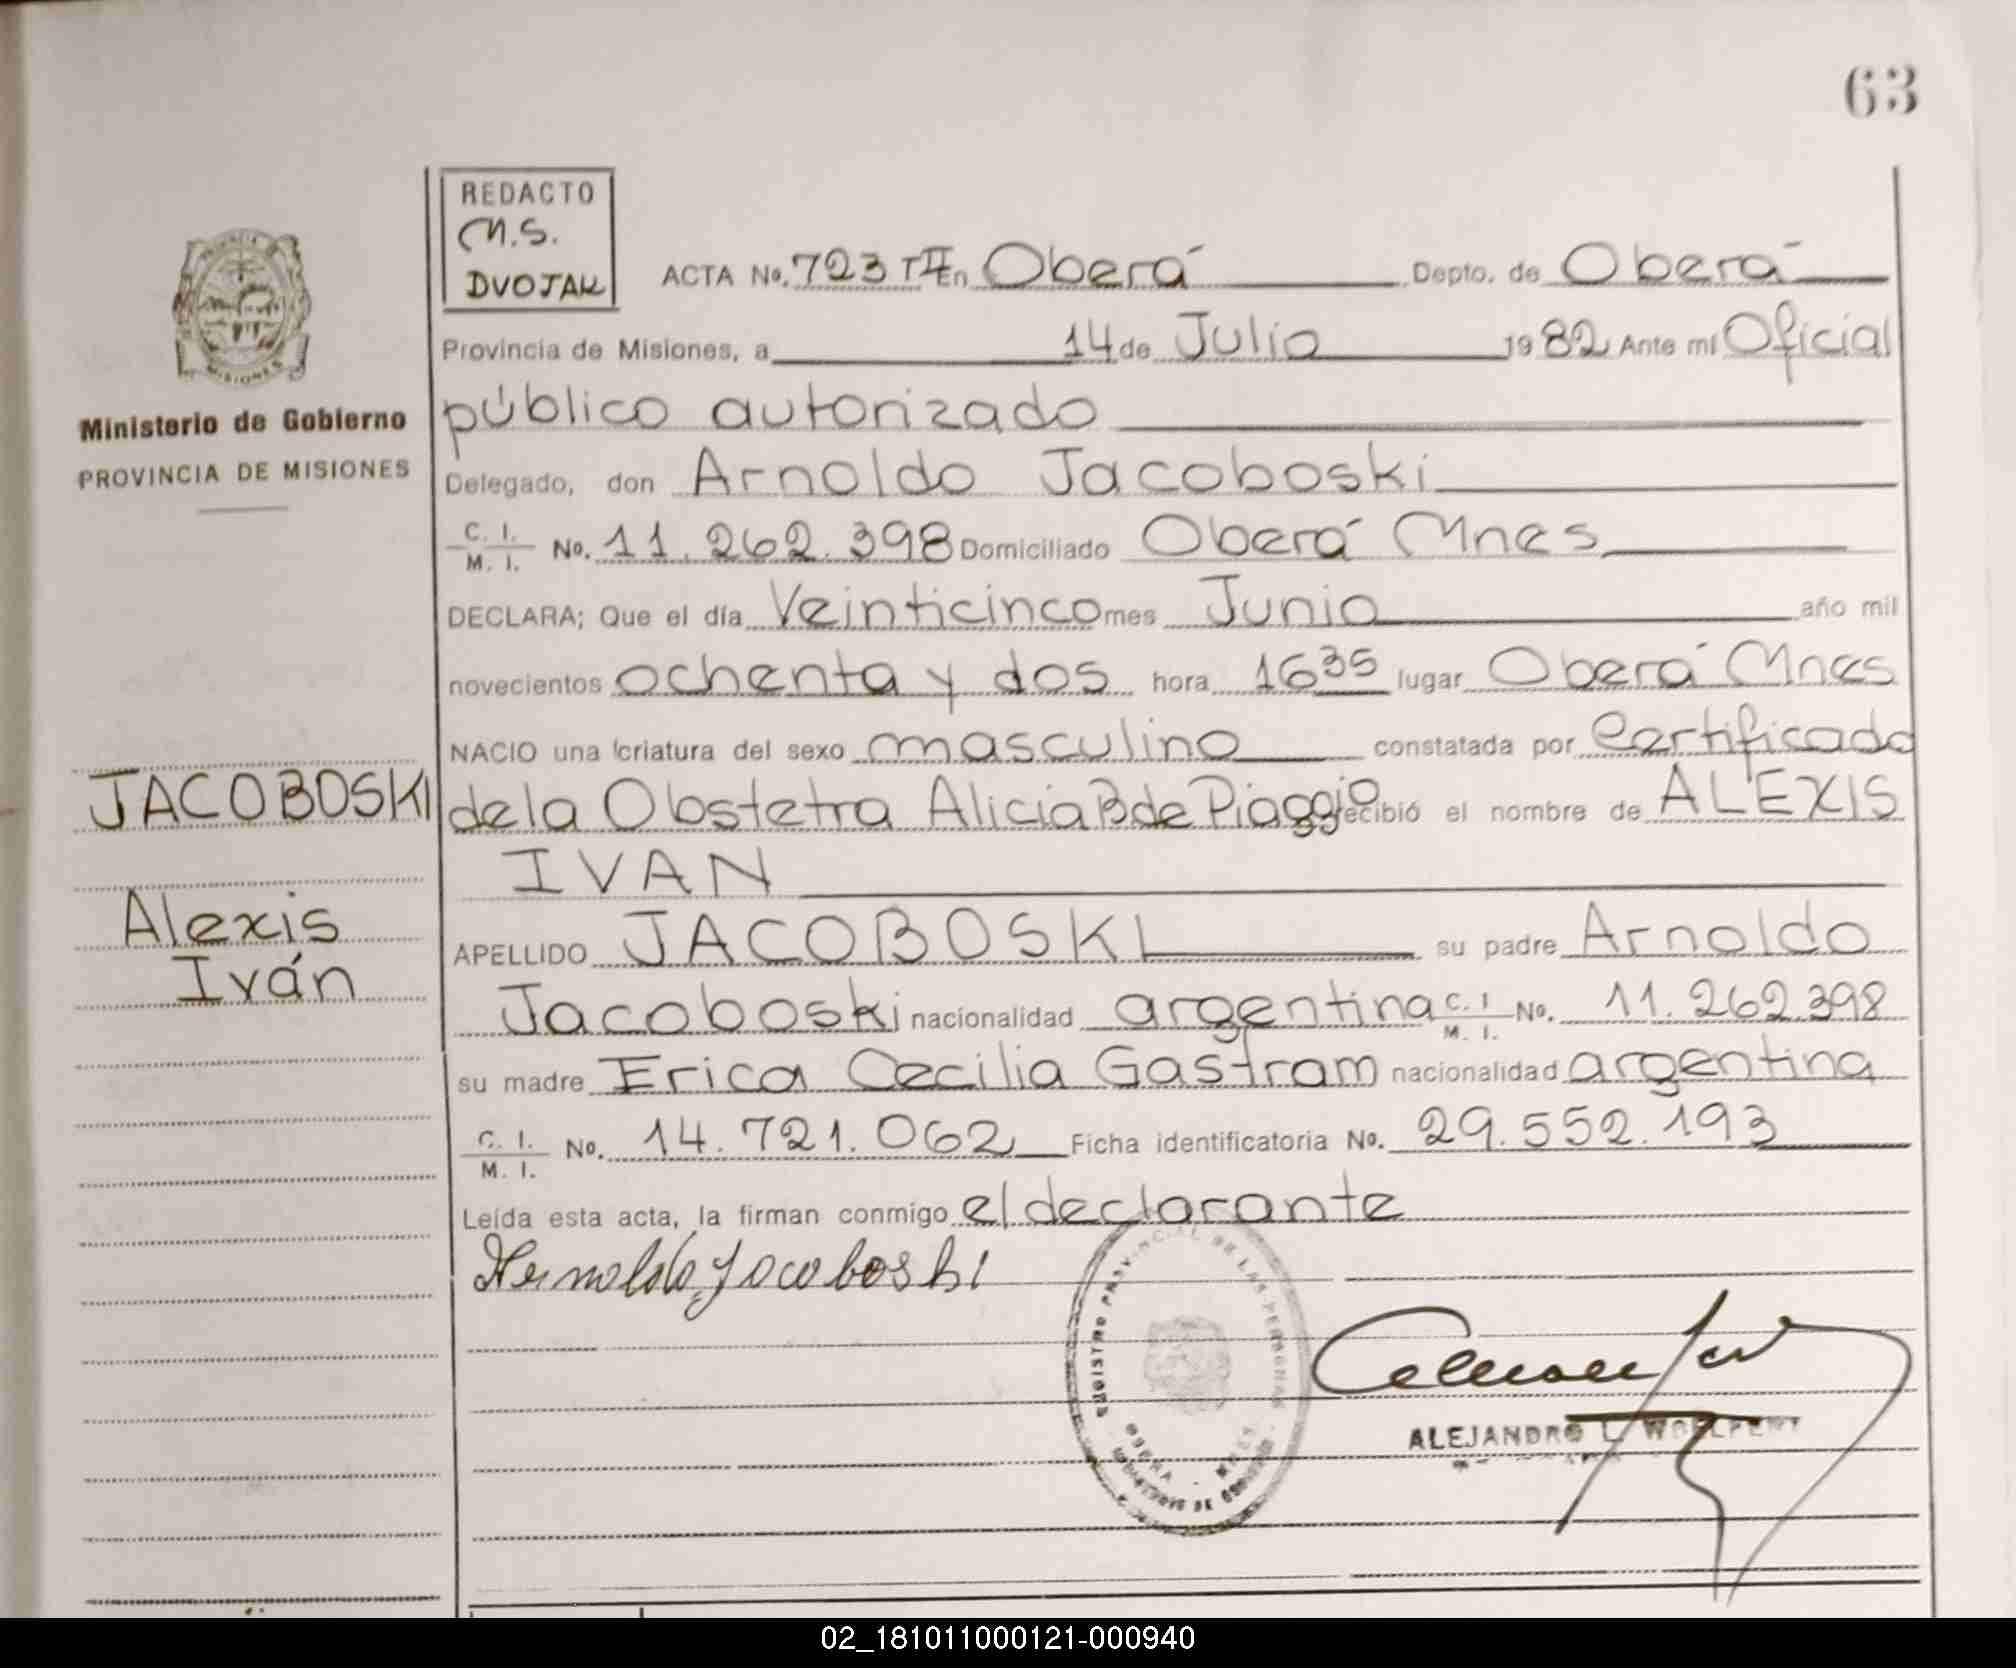 63
REDACTO
M.S.
DVOJAK
ACTA No. 723 TII En Oberá Depto. de Oberá
Provincia de Misiones, a 14 de Julio 1982 Ante mi Oficial
público autorizado
Delegado, don Arnoldo Jacoboski
C. I. M. I. No. 11.262.398 Domiciliado Oberá Mnes
DECLARA; Que el día Veinticinco mes Junio año mil
novecientos ochenta y dos hora 16 35 lugar Oberá Mnes
NACIO una criatura del sexo masculino constatada por Certificado
de la Obstetra Alicia B de Piaggio recibió el nombre de ALEXIS
IVAN
APELLIDO JACOBOSKI su padre Arnoldo
Jacoboski nacionalidad argentina C. I M. I. No. 11.262.398
su madre Erica Cecilia Gastram nacionalidad argentina
C. I. M. I. No. 14.721.062 Ficha identificatoria No. 29.552.193
Leída esta acta, la firman conmigo el declarante
Arnoldo Jacoboski
PROVINCIA
MISIONES
Ministerio de Gobierno
PROVINCIA DE MISIONES
JACOBOSKI
Alexis
Iván
REGISTRO PROVINCIAL DE LAS PERSONAS
OBERA - MNES
ALEJANDRO L.
02_181011000121-000940